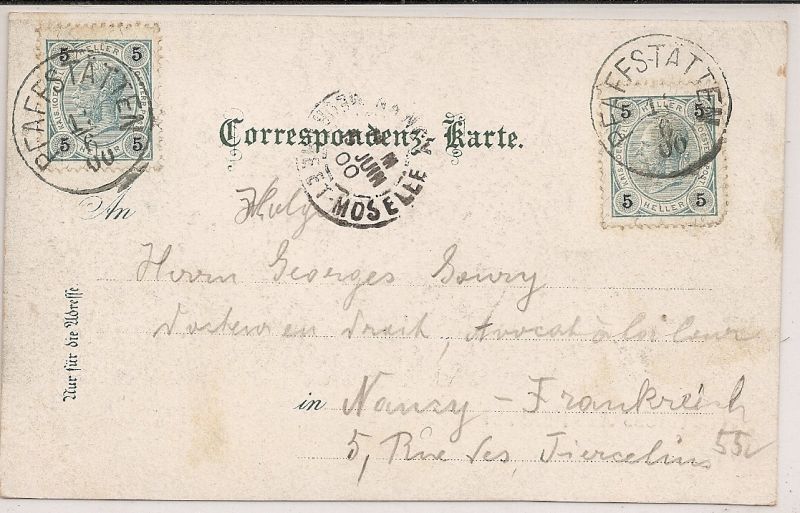 5 HELLER 5
5 HELLER 5
PFAFFSTÄTTEN
00
5 5
5 HELLER 5
PFAFFSTÄTTEN
00
Correspondenz-Karte.
JUIN
00
MOSELLE
An
Herrn Georges Goury
Docteur en droit, Avocat à la Cour
in Nanzy - Frankreich
5, Rue des Tiercelins
552
Nur für die Adresse